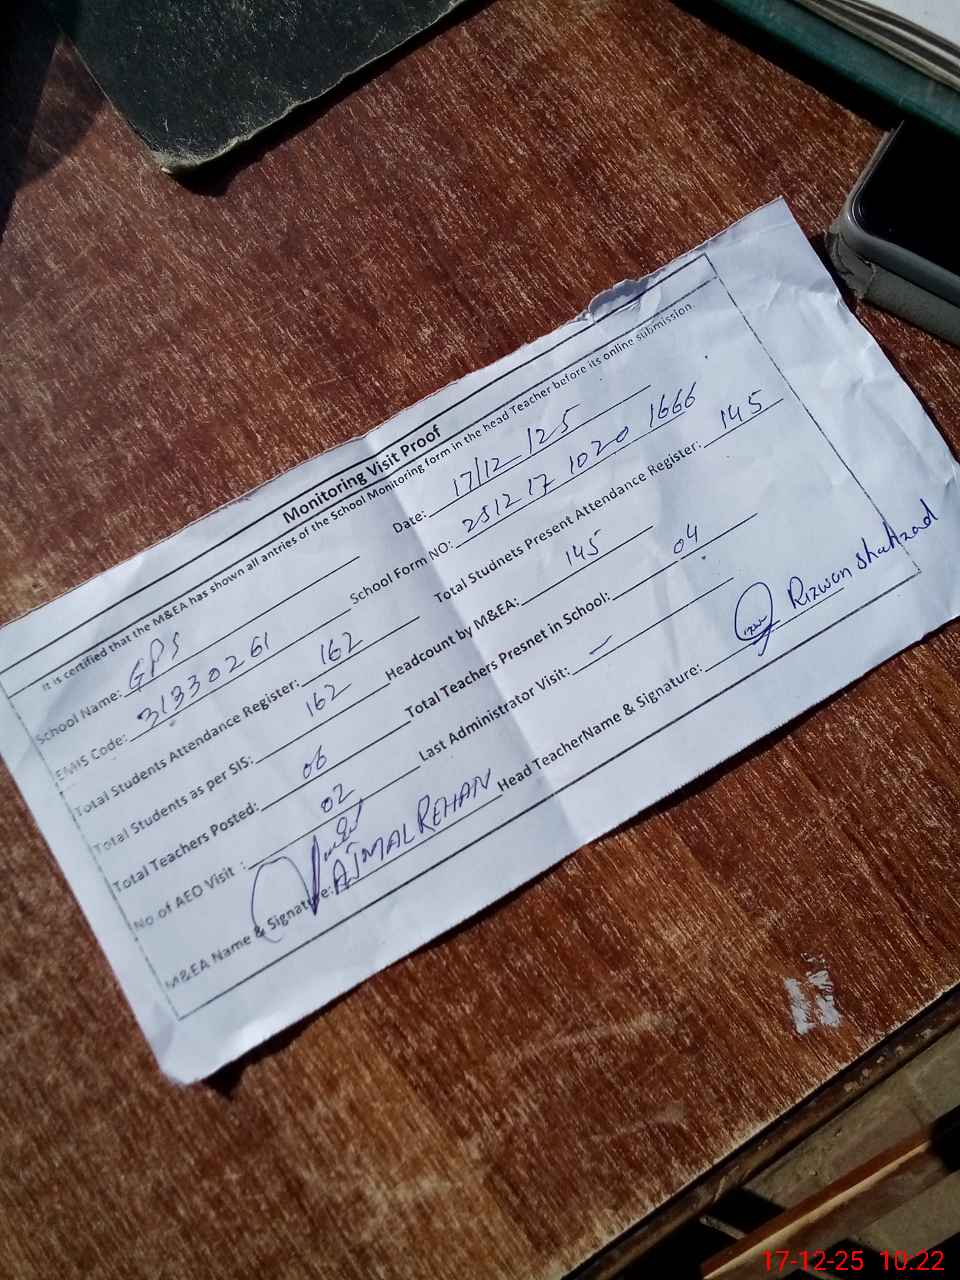 Monitoring Visit Proof
It is certified that the M&EA has shown all antries of the School Monitoring form in the head Teacher before its online submission
School Name: GPS Date: 17/12/25
EMIS Code: 31330261 School Form NO: 251217 1020 1666
Total Students Attendance Register: 162 Total Studnets Present Attendance Register: 145
Total Students as per SIS: 162 Headcount by M&EA: 145
Total Teachers Posted: 06 Total Teachers Presnet in School: 04
No of AEO Visit : 02 Last Administrator Visit: –
M&EA Name & Signature: AJMAL REHAN Head TeacherName & Signature: Rizwan Shahzad
17-12-25 10:22